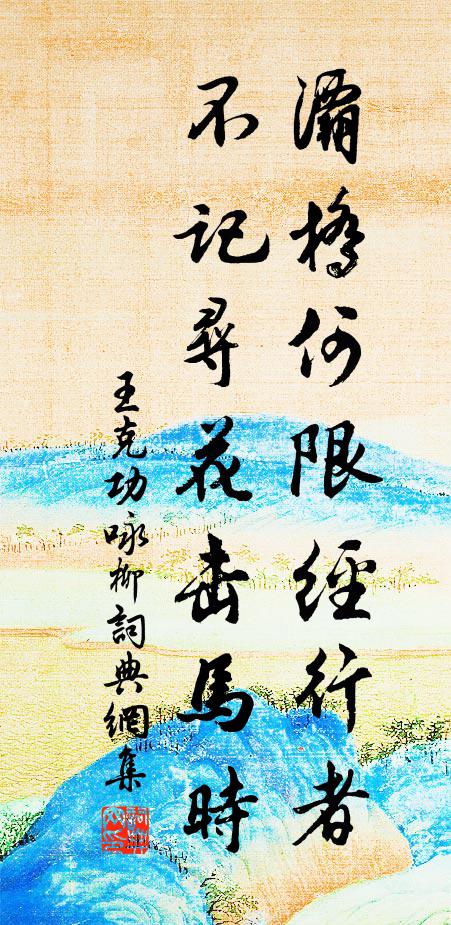 灞橋何限經行者
不記尋花击馬時
王克功咏柳詞典網集